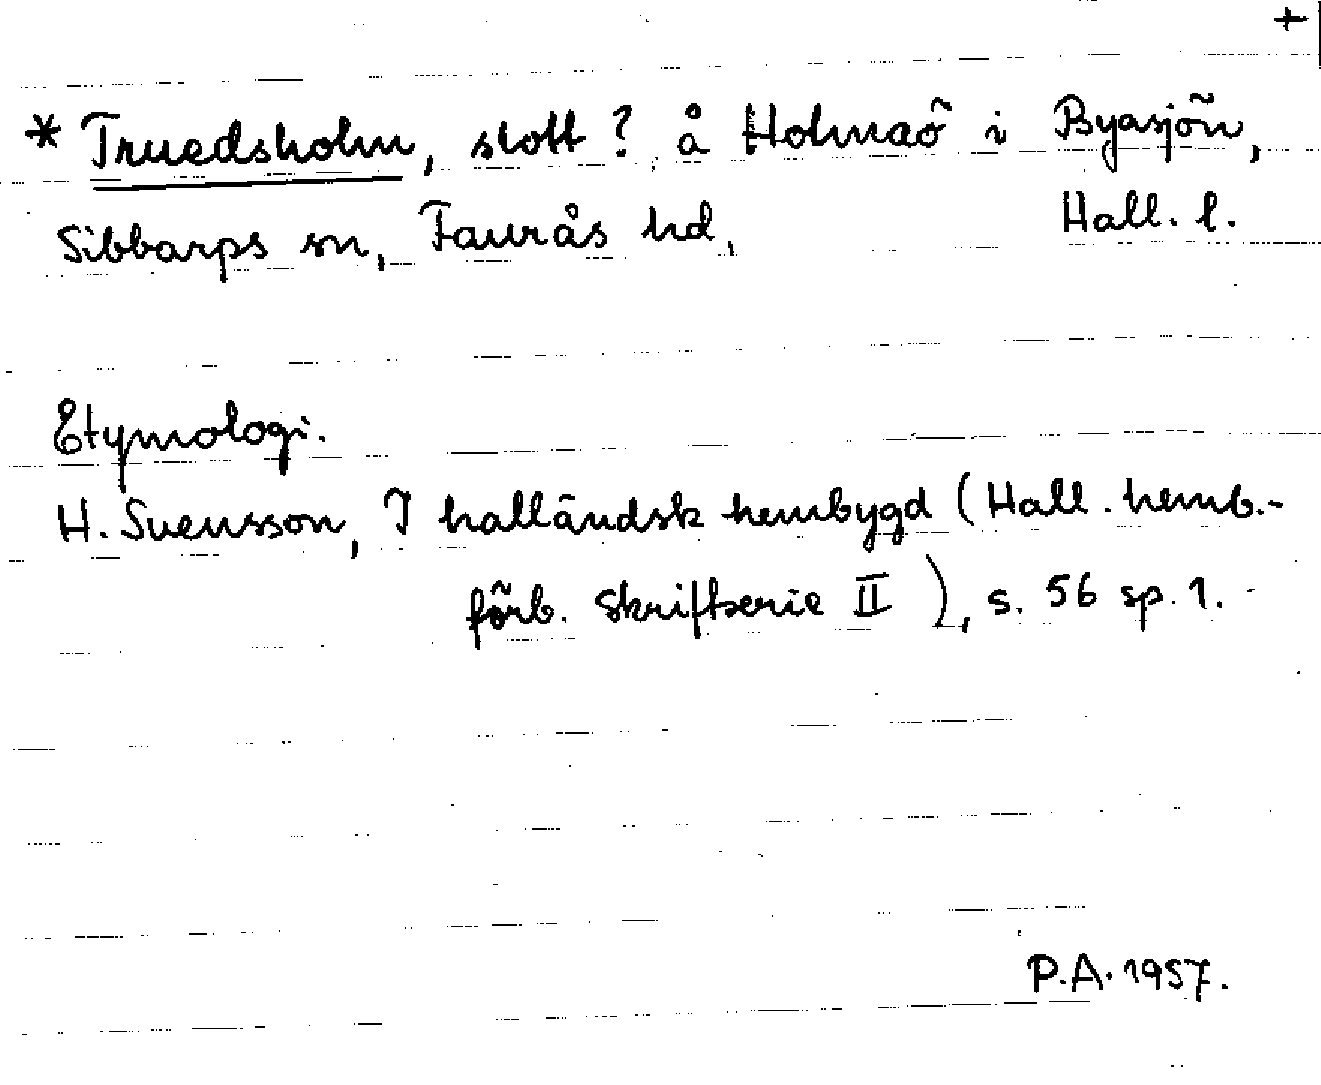 +
* Truedsholm, slott? å Holmaö i Byasjön,
Sibbarps sn, Faurås hd, Hall. l.
Etymologi.
H. Svensson, I halländsk hembygd (Hall. hemb.-
förb. skriftserie II), s. 56 sp. 1.
P.A. 1957.